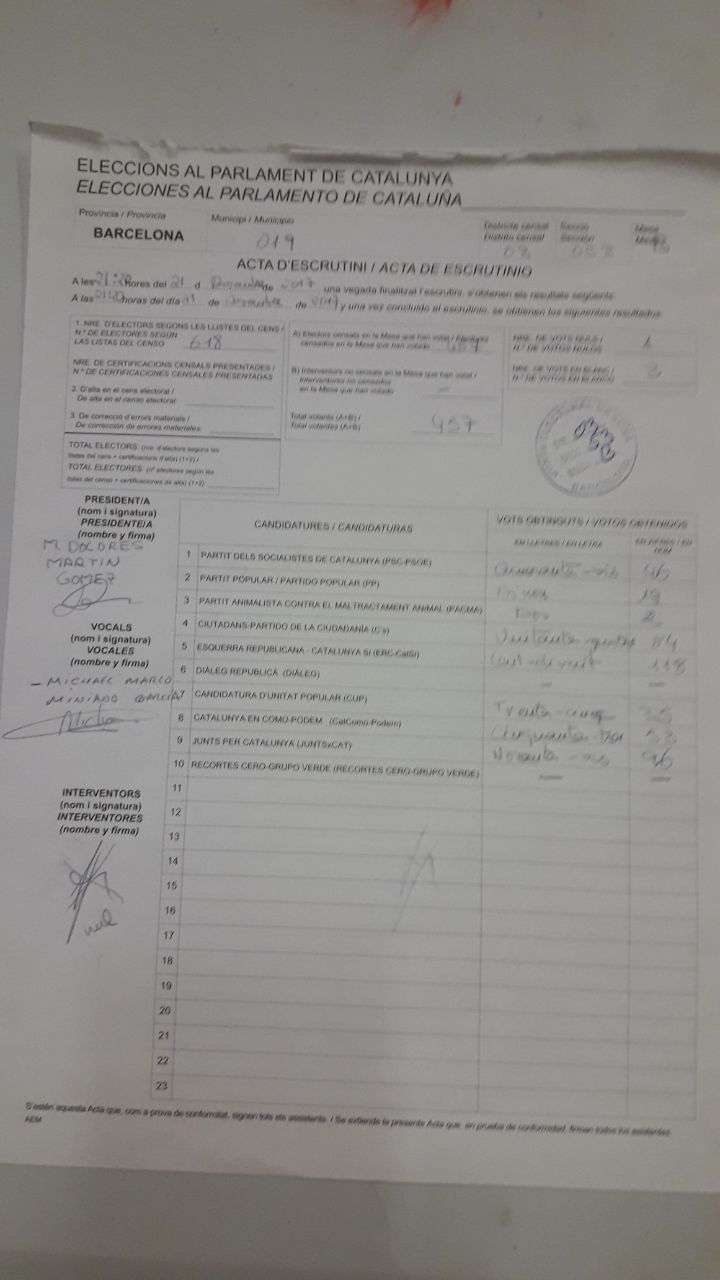 ELECCIONS AL PARLAMENT DE CATALUNYA
ELECCIONES AL PARLAMENTO DE CATALUÑA
Província / Provincia
Municipi / Municipio
Districte censal
Distrito censal
Secció
Sección
Mesa
Mesa
BARCELONA
019
ACTA D'ESCRUTINI / ACTA DE ESCRUTINIO
A les hores del 21 d de 2017, una vegada finalitzat l'escrutini, s'obtenen els resultats següents
A las horas del día 21 de de 2017 y una vez concluido el escrutinio, se obtienen los siguientes resultados
1. NRE. D'ELECTORS SEGONS LES LLISTES DEL CENS /
N.º DE ELECTORES SEGÚN
LAS LISTAS DEL CENSO 618
NRE. DE CERTIFICACIONS CENSALS PRESENTADES /
N.º DE CERTIFICACIONES CENSALES PRESENTADAS
2. D'alta en el cens electoral /
De alta en el censo electoral:
3. De correcció d'errors materials /
De corrección de errores materiales:
TOTAL ELECTORS: (nre. d'electors segons les
llistes del cens + certificacions d'alta) (1+2) /
TOTAL ELECTORES: (nº electores según las
listas del censo + certificaciones de alta) (1+2)
A) Electors censats en la Mesa que han votat / Electores
censados en la Mesa que han votado 457
B) Interventors no censats en la Mesa que han votat /
Interventores no censados
en la Mesa que han votado –
Total votants (A+B) /
Total votantes (A+B) 457
NRE. DE VOTS NULS /
N.º DE VOTOS NULOS
NRE. DE VOTS EN BLANC /
N.º DE VOTOS EN BLANCO 3
PRESIDENT/A
(nom i signatura)
PRESIDENTE/A
(nombre y firma)
M. DOLORES
MARTIN
GOMEZ
VOCALS
(nom i signatura)
VOCALES
(nombre y firma)
– MICHAEL MARCO
GARCIA
INTERVENTORS
(nom i signatura)
INTERVENTORES
(nombre y firma)
CANDIDATURES / CANDIDATURAS
VOTS OBTINGUTS / VOTOS OBTENIDOS
EN LLETRES / EN LETRA
1 PARTIT DELS SOCIALISTES DE CATALUNYA (PSC-PSOE) Quaranta-sis 46
2 PARTIT POPULAR / PARTIDO POPULAR (PP) 19
3 PARTIT ANIMALISTA CONTRA EL MALTRACTAMENT ANIMAL (PACMA) Dos 2
4 CIUTADANS-PARTIDO DE LA CIUDADANÍA (C's) Vuitanta quatre 84
5 ESQUERRA REPUBLICANA - CATALUNYA SÍ (ERC-CatSí) 118
6 DIÀLEG REPUBLICÀ (DIÀLEG) – –
7 CANDIDATURA D'UNITAT POPULAR (CUP) Trenta-cinq 35
8 CATALUNYA EN COMÚ-PODEM (CatComú-Podem) Cinquanta-tres 53
9 JUNTS PER CATALUNYA (JUNTSxCAT) Noranta-sis 96
10 RECORTES CERO-GRUPO VERDE (RECORTES CERO-GRUPO VERDE) – –
11
12
13
14
15
16
17
18
19
20
21
22
23
S'estén aquesta Acta que, com a prova de conformitat, signen tots els assistents. / Se extiende la presente Acta que, en prueba de conformidad, firman todos los asistentes.